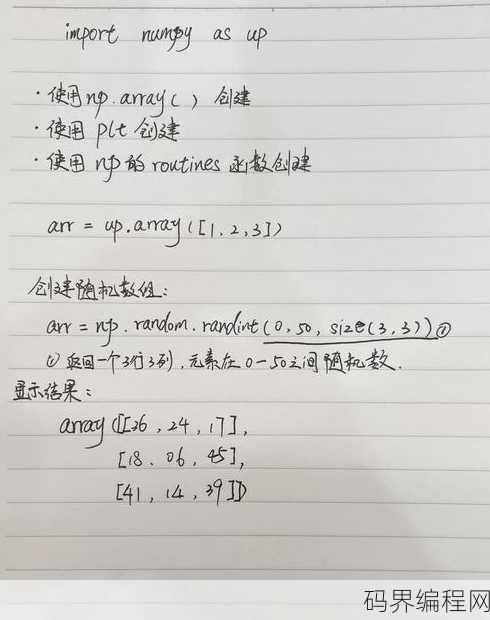 import numpy as up
·使用np.array() 创建
·使用 plt 创建
·使用 np的routines 函数创建
arr = up.array([1,2,3])
创建随机数组:
arr = np.random.randint(0,50,size(3,3))①
① 返回一个3行3列,元素在0-50之间随机数.
显示结果:
array([[26,24,17],
[18、06,45],
[41,14,39]])
码界编程网